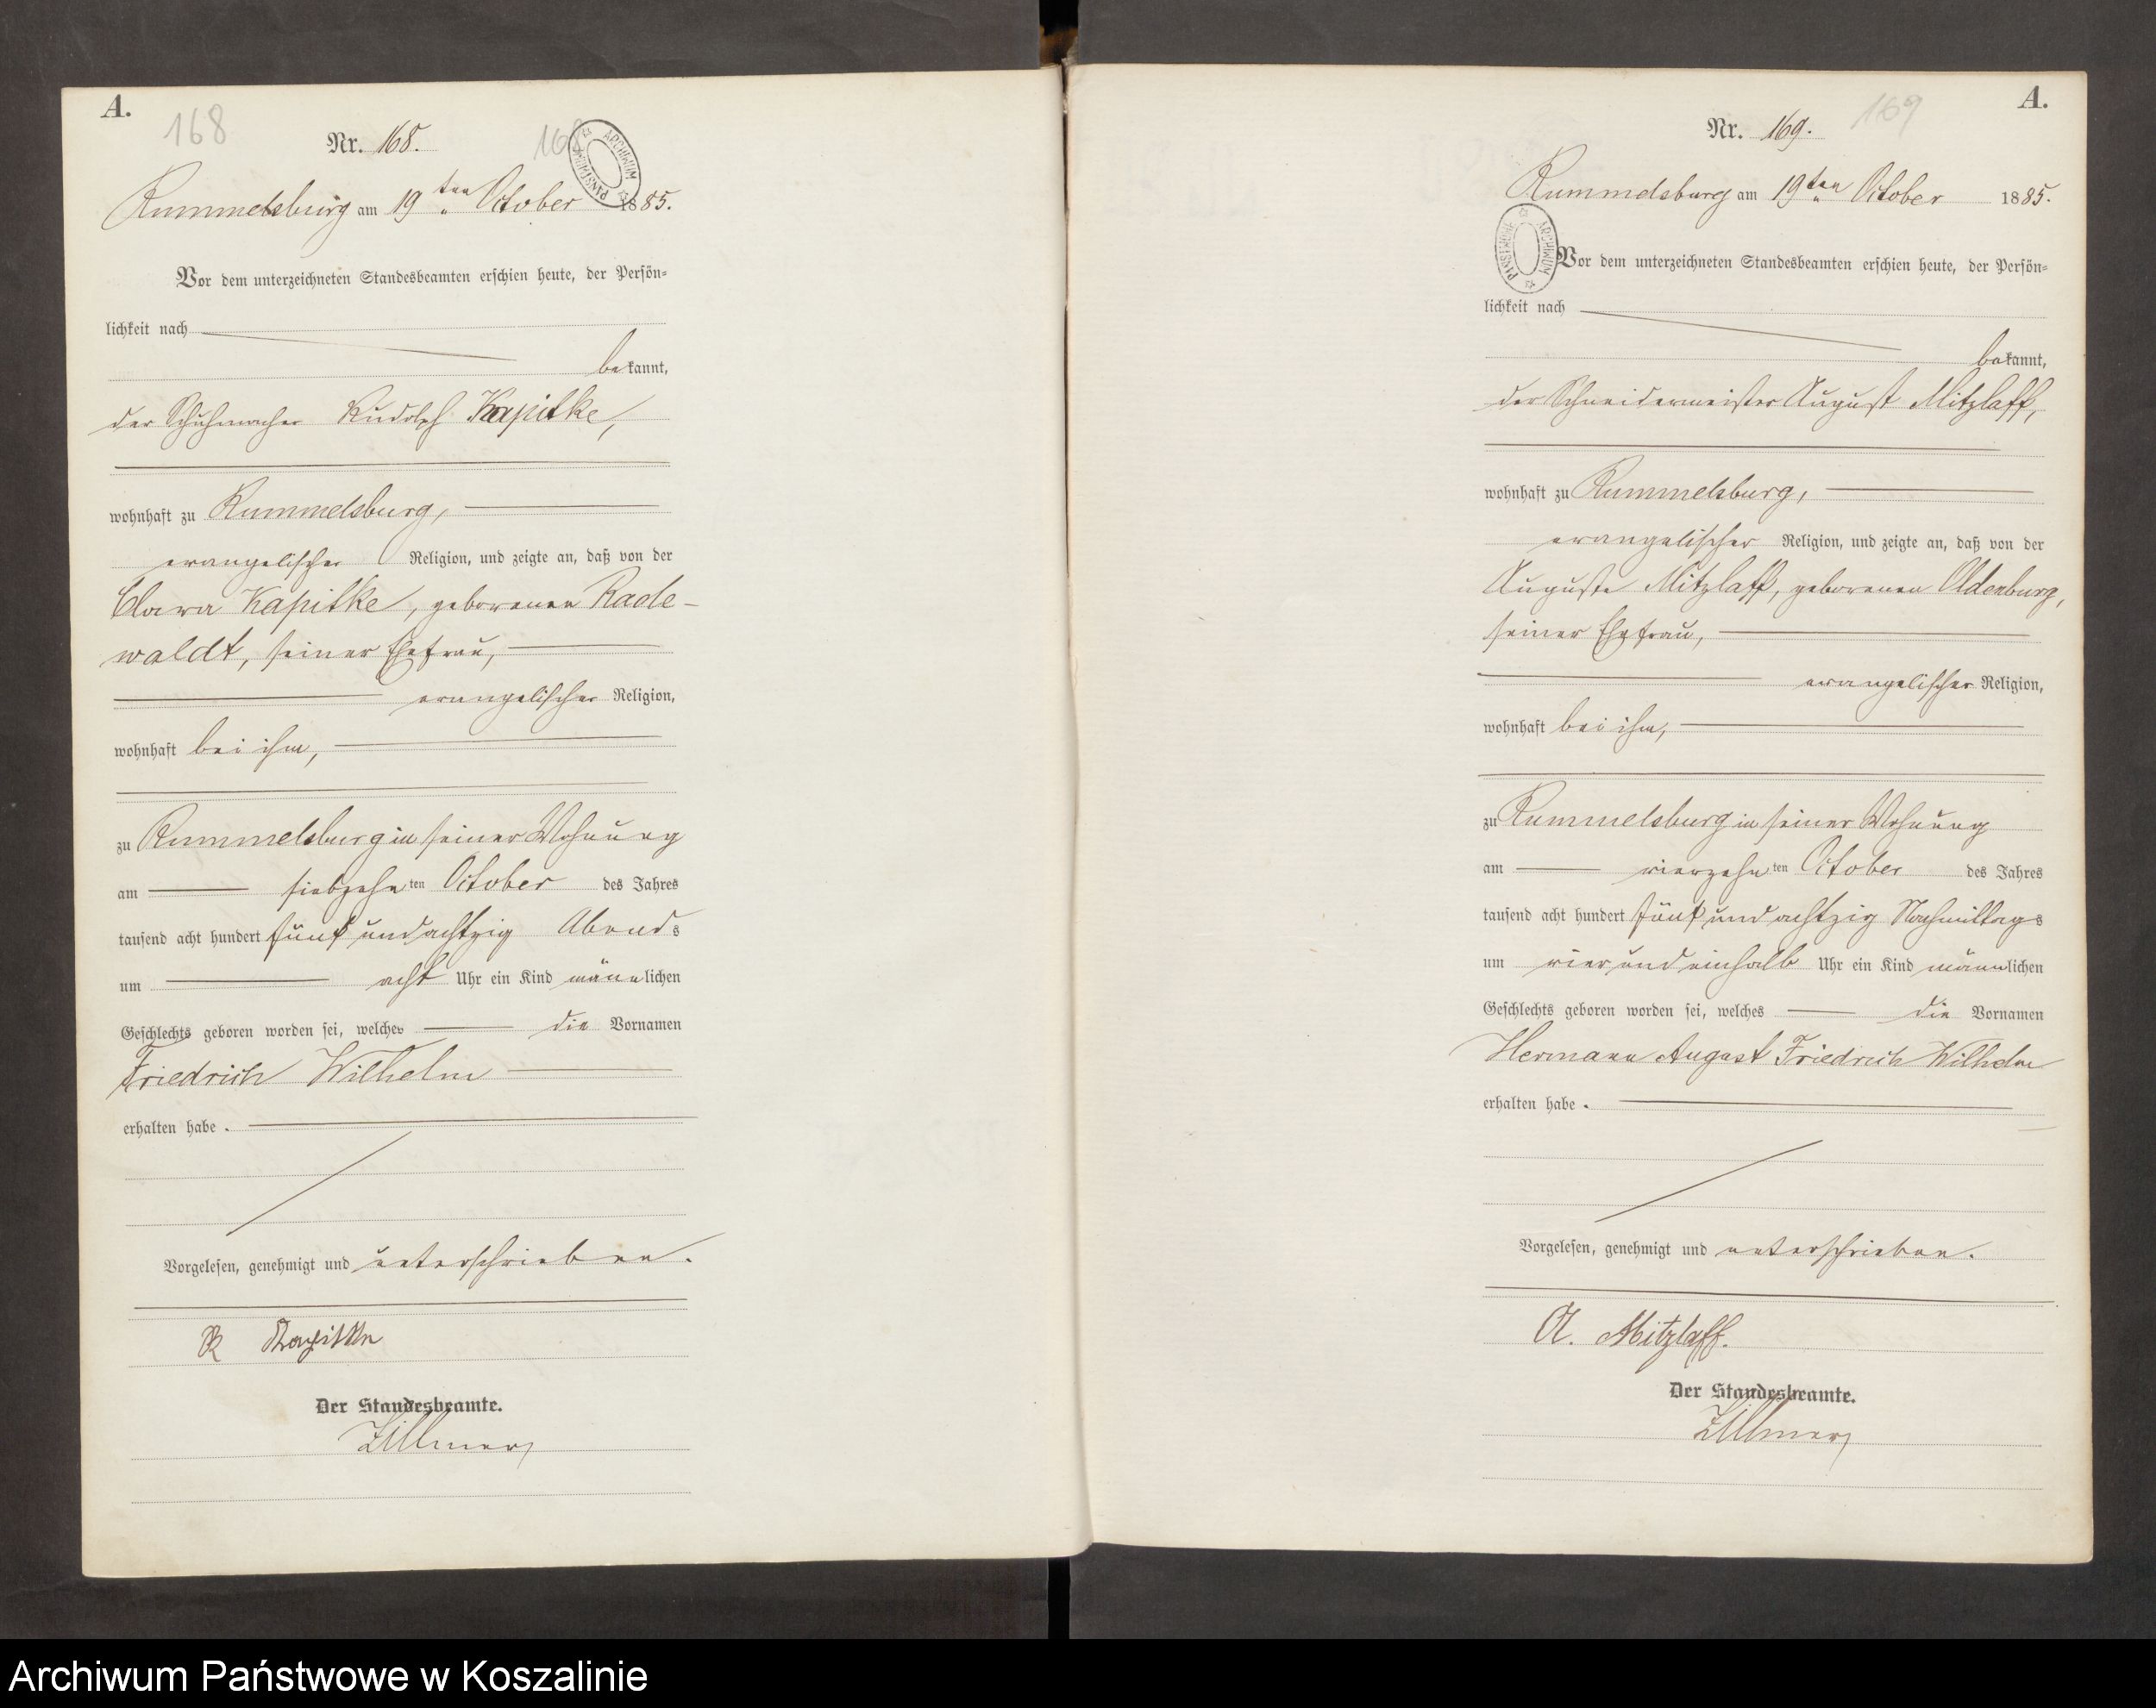 A.
168
Nr. 168.
168
ARCHIWUM PAŃSTWOWE
Rummelsburg am 19ten October 1885.
Vor dem unterzeichneten Standesbeamten erschien heute, der Persön=
lichkeit nach
bekannt,
der Schuhmacher Rudolph Kapitke,
wohnhaft zu Rummelsburg,
evangelischer Religion, und zeigte an, daß von der
Clara Kapitke, geborenen Rade-
waldt, seiner Ehefrau,
evangelischer Religion,
wohnhaft bei ihm,
zu Rummelsburg in seiner Wohnung
am siebzehnten October des Jahres
tausend acht hundert fünf und achtzig Abends
um acht Uhr ein Kind männlichen
Geschlechts geboren worden sei, welches die Vornamen
Friedrich Wilhelm
erhalten habe.
Vorgelesen, genehmigt und unterschrieben.
R Kapitke
Der Standesbeamte.
Zillmer
A.
169
Nr. 169.
Rummelsburg am 19ten October 1885.
ARCHIWUM PAŃSTWOWE
Vor dem unterzeichneten Standesbeamten erschien heute, der Persön=
lichkeit nach
bekannt,
der Schneidermeister August Mitzlaff,
wohnhaft zu Rummelsburg,
evangelischer Religion, und zeigte an, daß von der
Auguste Mitzlaff, geborenen Oldenburg,
seiner Ehefrau,
evangelischer Religion,
wohnhaft bei ihm,
zu Rummelsburg in seiner Wohnung
am vierzehnten October des Jahres
tausend acht hundert fünf und achtzig Nachmittags
um vier und einhalb Uhr ein Kind männlichen
Geschlechts geboren worden sei, welches die Vornamen
Hermann August Friedrich Wilhelm
erhalten habe.
Vorgelesen, genehmigt und unterschrieben.
A. Mitzlaff.
Der Standesbeamte.
Zillmer
Archiwum Państwowe w Koszalinie